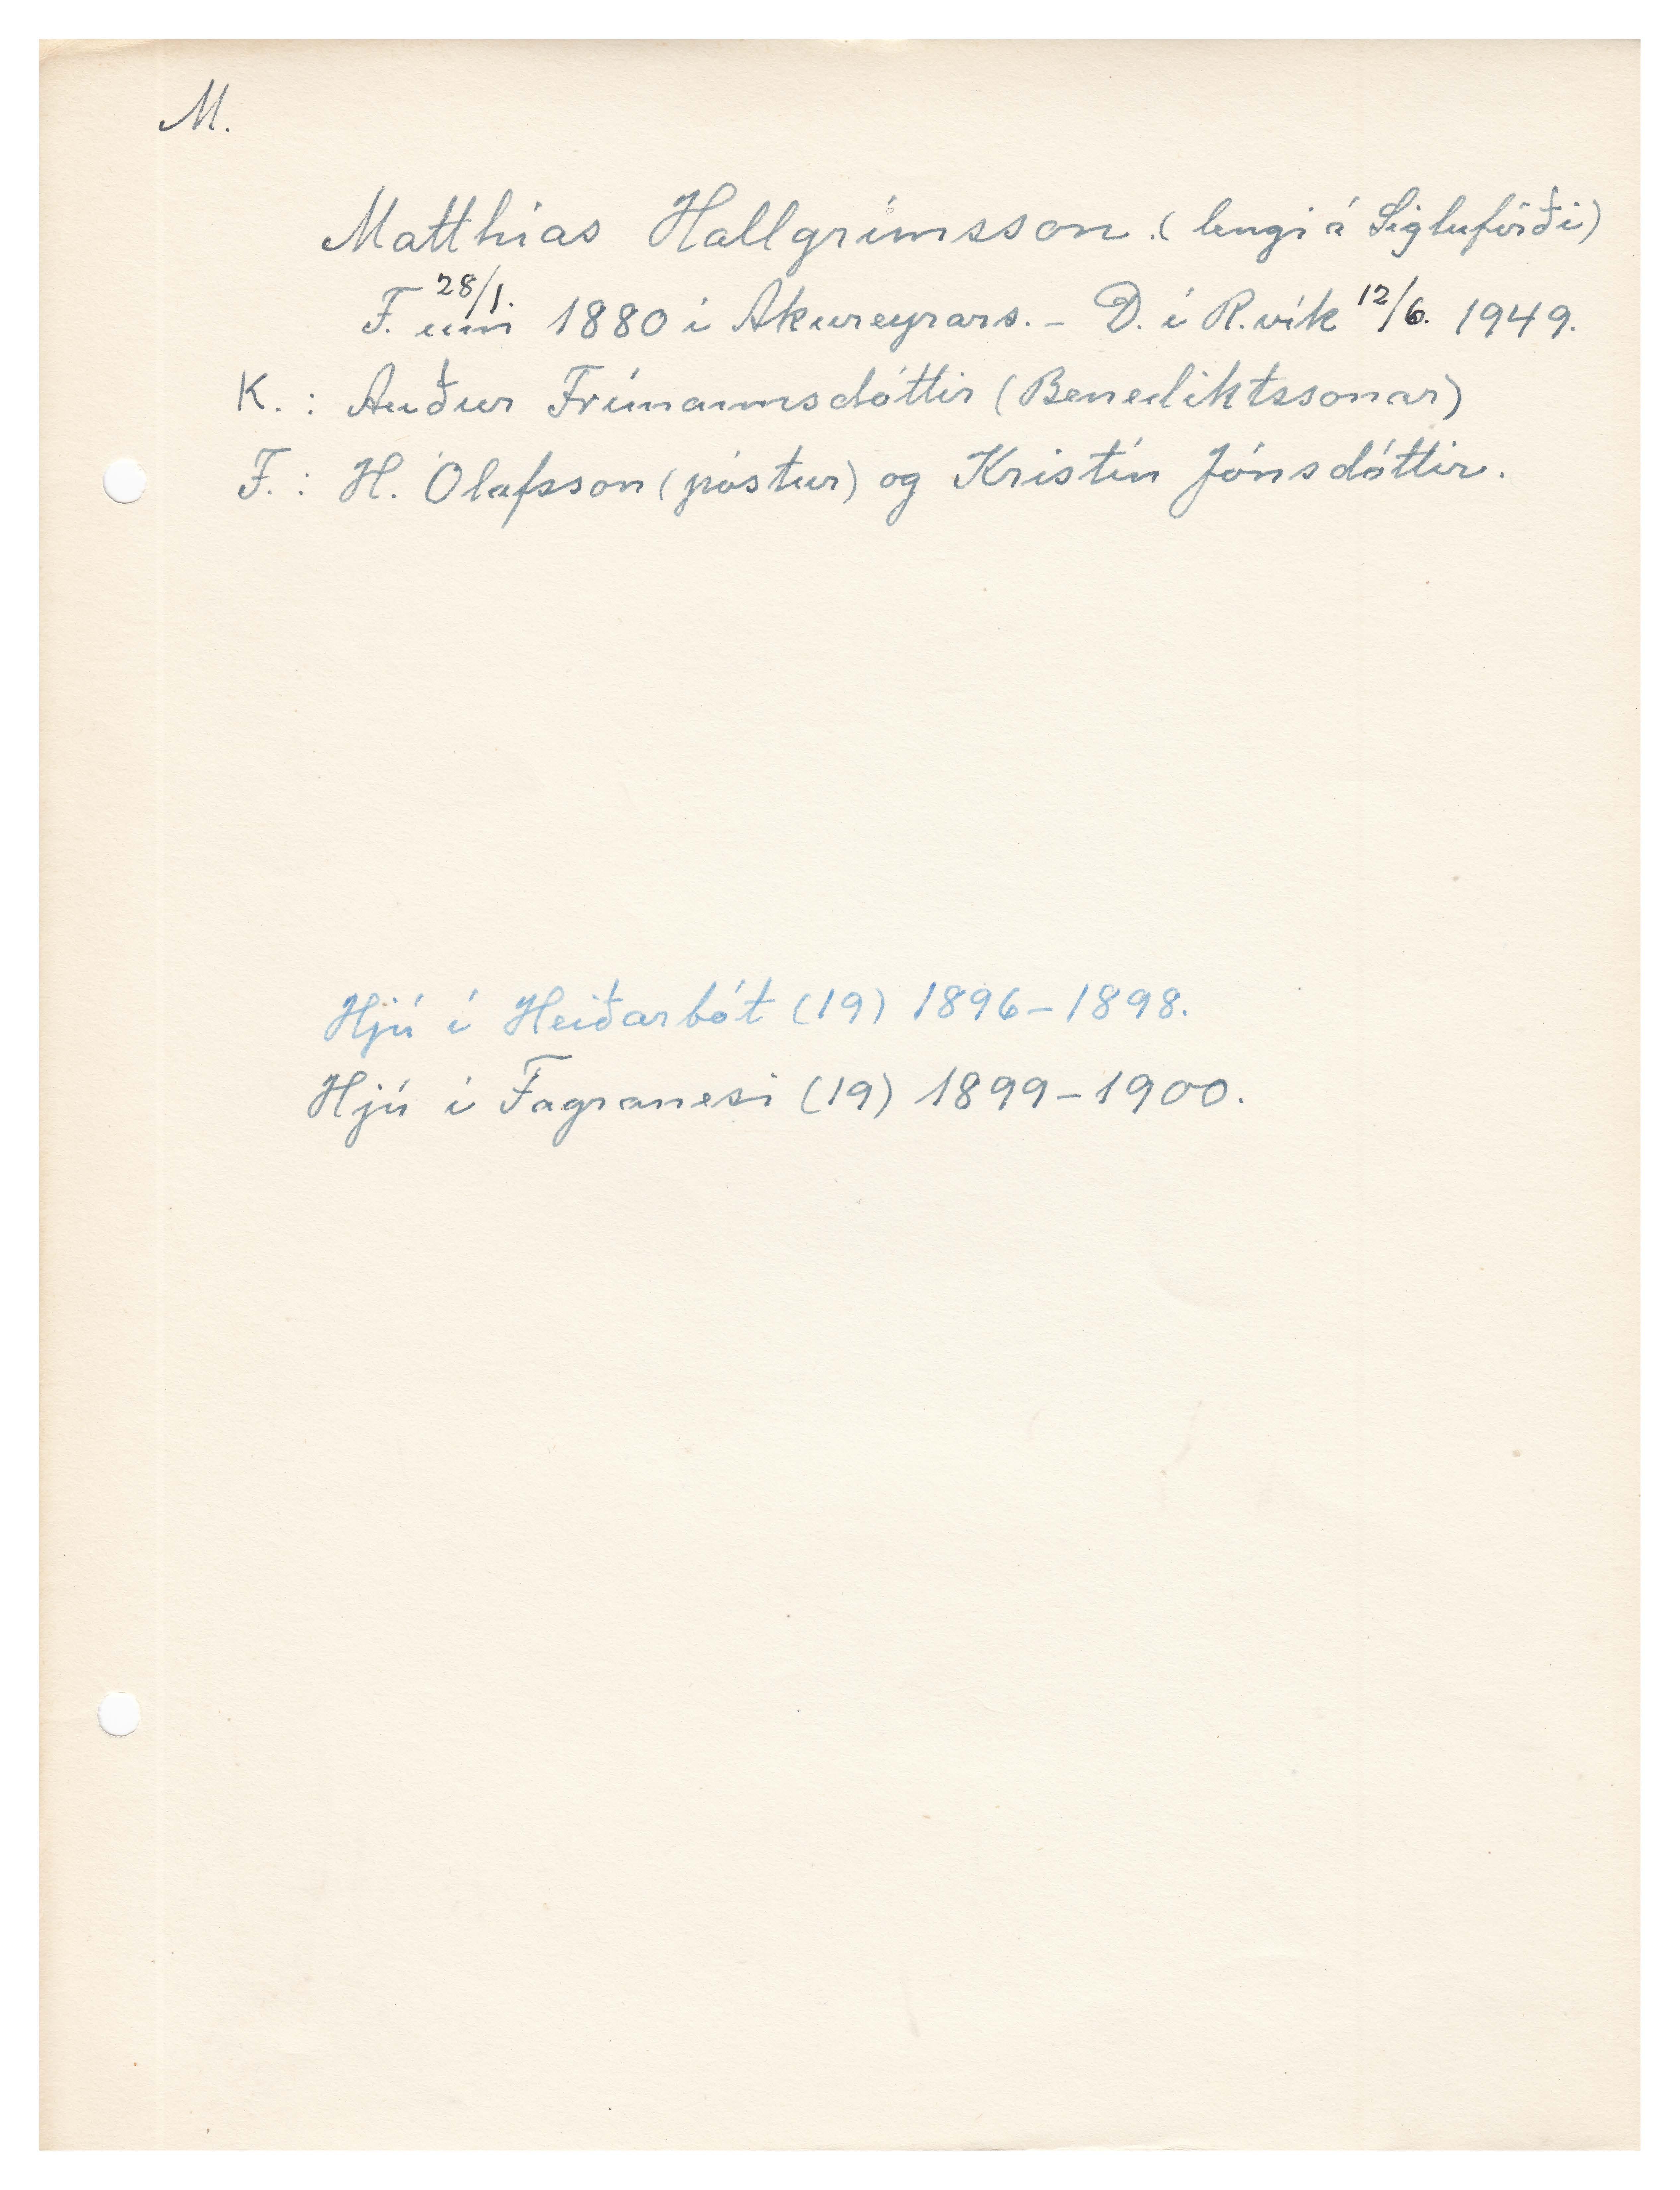 M.
Matthías Hallgrímsson. (lengi á Siglufirði)
F. um 28/1. 1880 í Akureyrars. - D. í R.vík 12/6. 1949.
K. : Auður Frímannsdóttir (Benediktssonar)
F. : H. Ólafsson (póstur) og Kristín Jónsdóttir.
Hjú í Heiðarbót (19) 1896-1898.
Hjú í Fagranesi (19) 1899-1900.